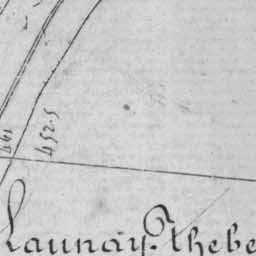 452.5
Launay. Thebe